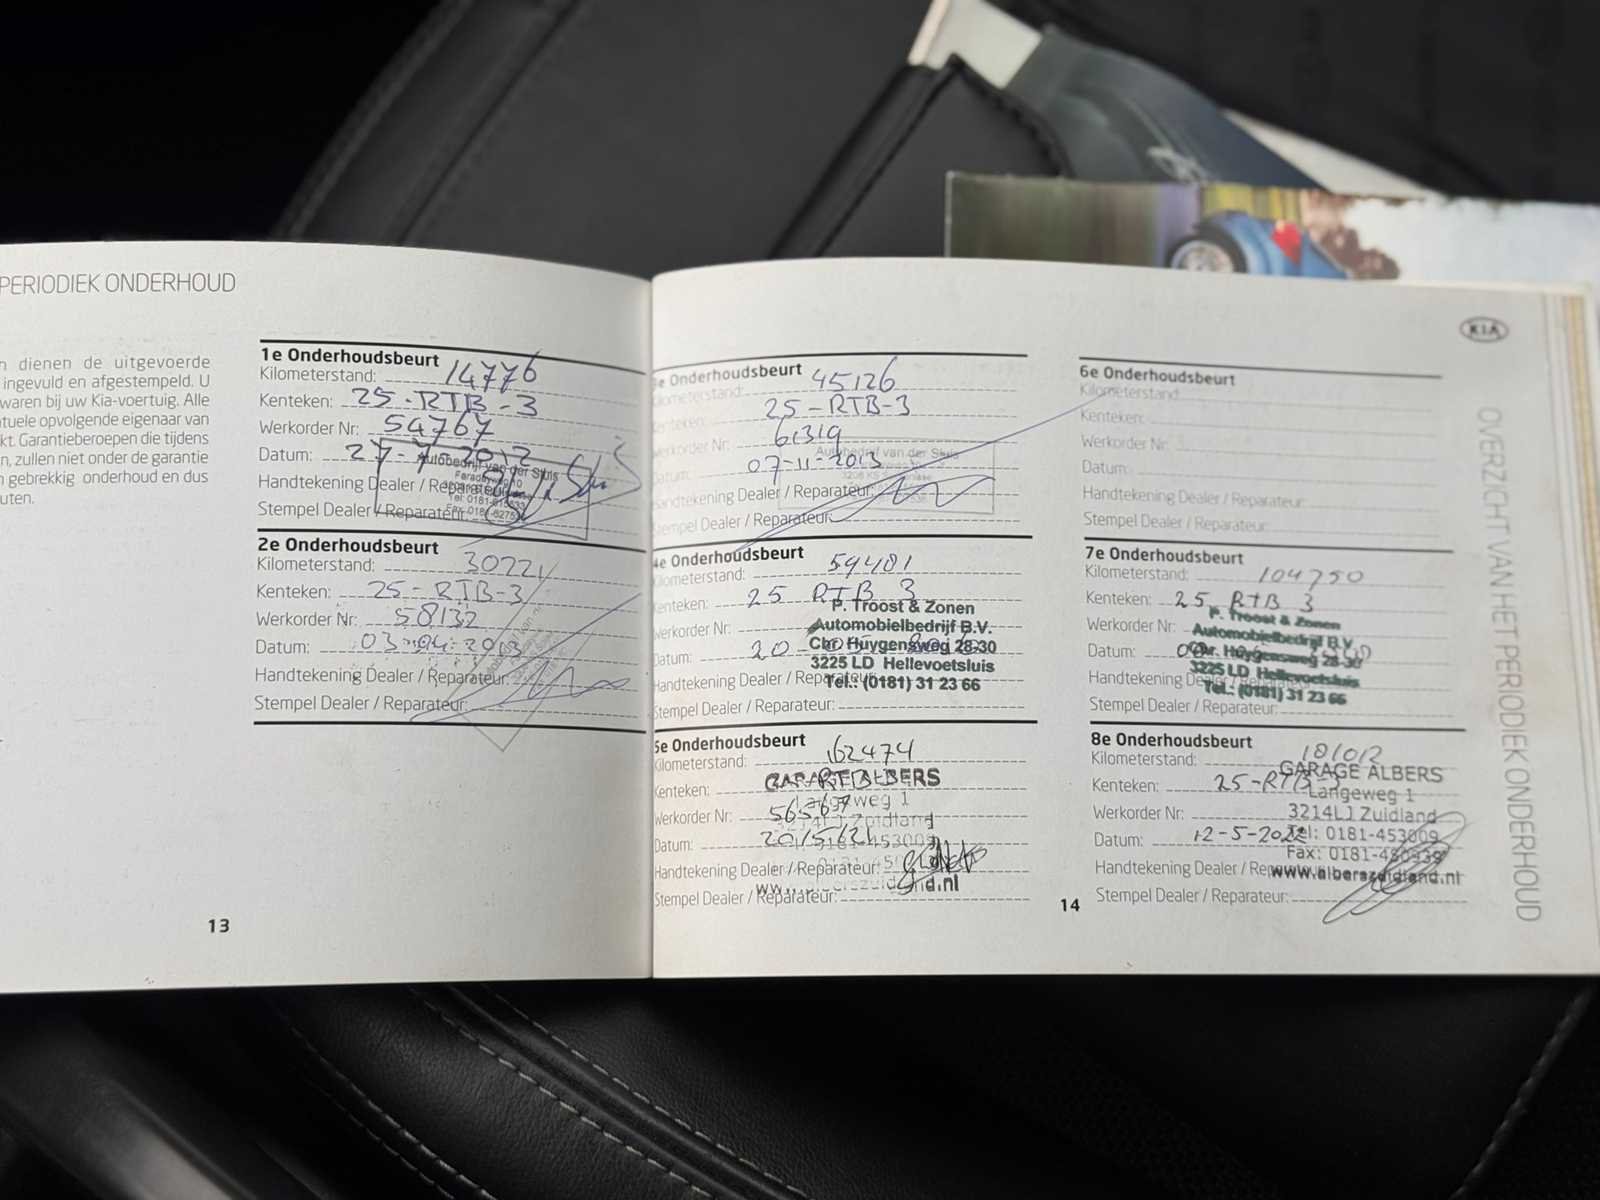 PERIODIEK ONDERHOUD
n dienen de uitgevoerde
ingevuld en afgestempeld. U
waren bij uw Kia-voertuig. Alle
tuele opvolgende eigenaar van
kt. Garantieberoepen die tijdens
n, zullen niet onder de garantie
n gebrekkig onderhoud en dus
uten.
1e Onderhoudsbeurt
Kilometerstand: 14776
Kenteken: 25-RTB-3
Werkorder Nr: 54767
Datum: 27-7-2012
Handtekening Dealer / Reparateur:
Stempel Dealer / Reparateur:
Autobedrijf van der Sluis
2e Onderhoudsbeurt
Kilometerstand: 30221
Kenteken: 25-RTB-3
Werkorder Nr: 58132
Datum: 03-04-2013
Handtekening Dealer / Reparateur:
Stempel Dealer / Reparateur:
13
3e Onderhoudsbeurt
Kilometerstand: 45126
Kenteken: 25-RTB-3
Werkorder Nr: 61319
Datum: 07-11-2013
Handtekening Dealer / Reparateur:
Stempel Dealer / Reparateur:
Autobedrijf van der Sluis
4e Onderhoudsbeurt
Kilometerstand: 59481
Kenteken: 25 RTB 3
Werkorder Nr:
Datum: 20
Handtekening Dealer / Reparateur:
Stempel Dealer / Reparateur:
P. Troost & Zonen
Automobielbedrijf B.V.
Chr. Huygensweg 28-30
3225 LD Hellevoetsluis
Tel.: (0181) 31 23 66
5e Onderhoudsbeurt
Kilometerstand: 162474
Kenteken:
Werkorder Nr:
Datum:
Handtekening Dealer / Reparateur:
Stempel Dealer / Reparateur:
GARAGE ALBERS
Langeweg 1
3214LJ Zuidland
6e Onderhoudsbeurt
Kilometerstand:
Kenteken:
Werkorder Nr:
Datum:
Handtekening Dealer / Reparateur:
Stempel Dealer / Reparateur:
7e Onderhoudsbeurt
Kilometerstand: 104750
Kenteken: 25 RTB 3
Werkorder Nr:
Datum:
Handtekening Dealer / Reparateur:
Stempel Dealer / Reparateur:
P. Troost & Zonen
Automobielbedrijf B.V.
Chr. Huygensweg 28-30
3225 LD Hellevoetsluis
Tel.: (0181) 31 23 66
8e Onderhoudsbeurt
Kilometerstand: 181012
Kenteken: 25-RTB-3
Werkorder Nr:
Datum: 12-5-2022
Handtekening Dealer / Reparateur:
Stempel Dealer / Reparateur:
GARAGE ALBERS
Langeweg 1
3214LJ Zuidland
Tel: 0181-453009
Fax: 0181-
www.alberszuidland.nl
14
KIA
OVERZICHT VAN HET PERIODIEK ONDERHOUD